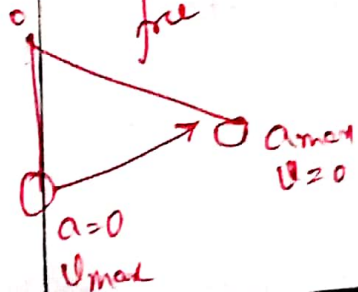 free
o
a max
v=0
a=0
v max